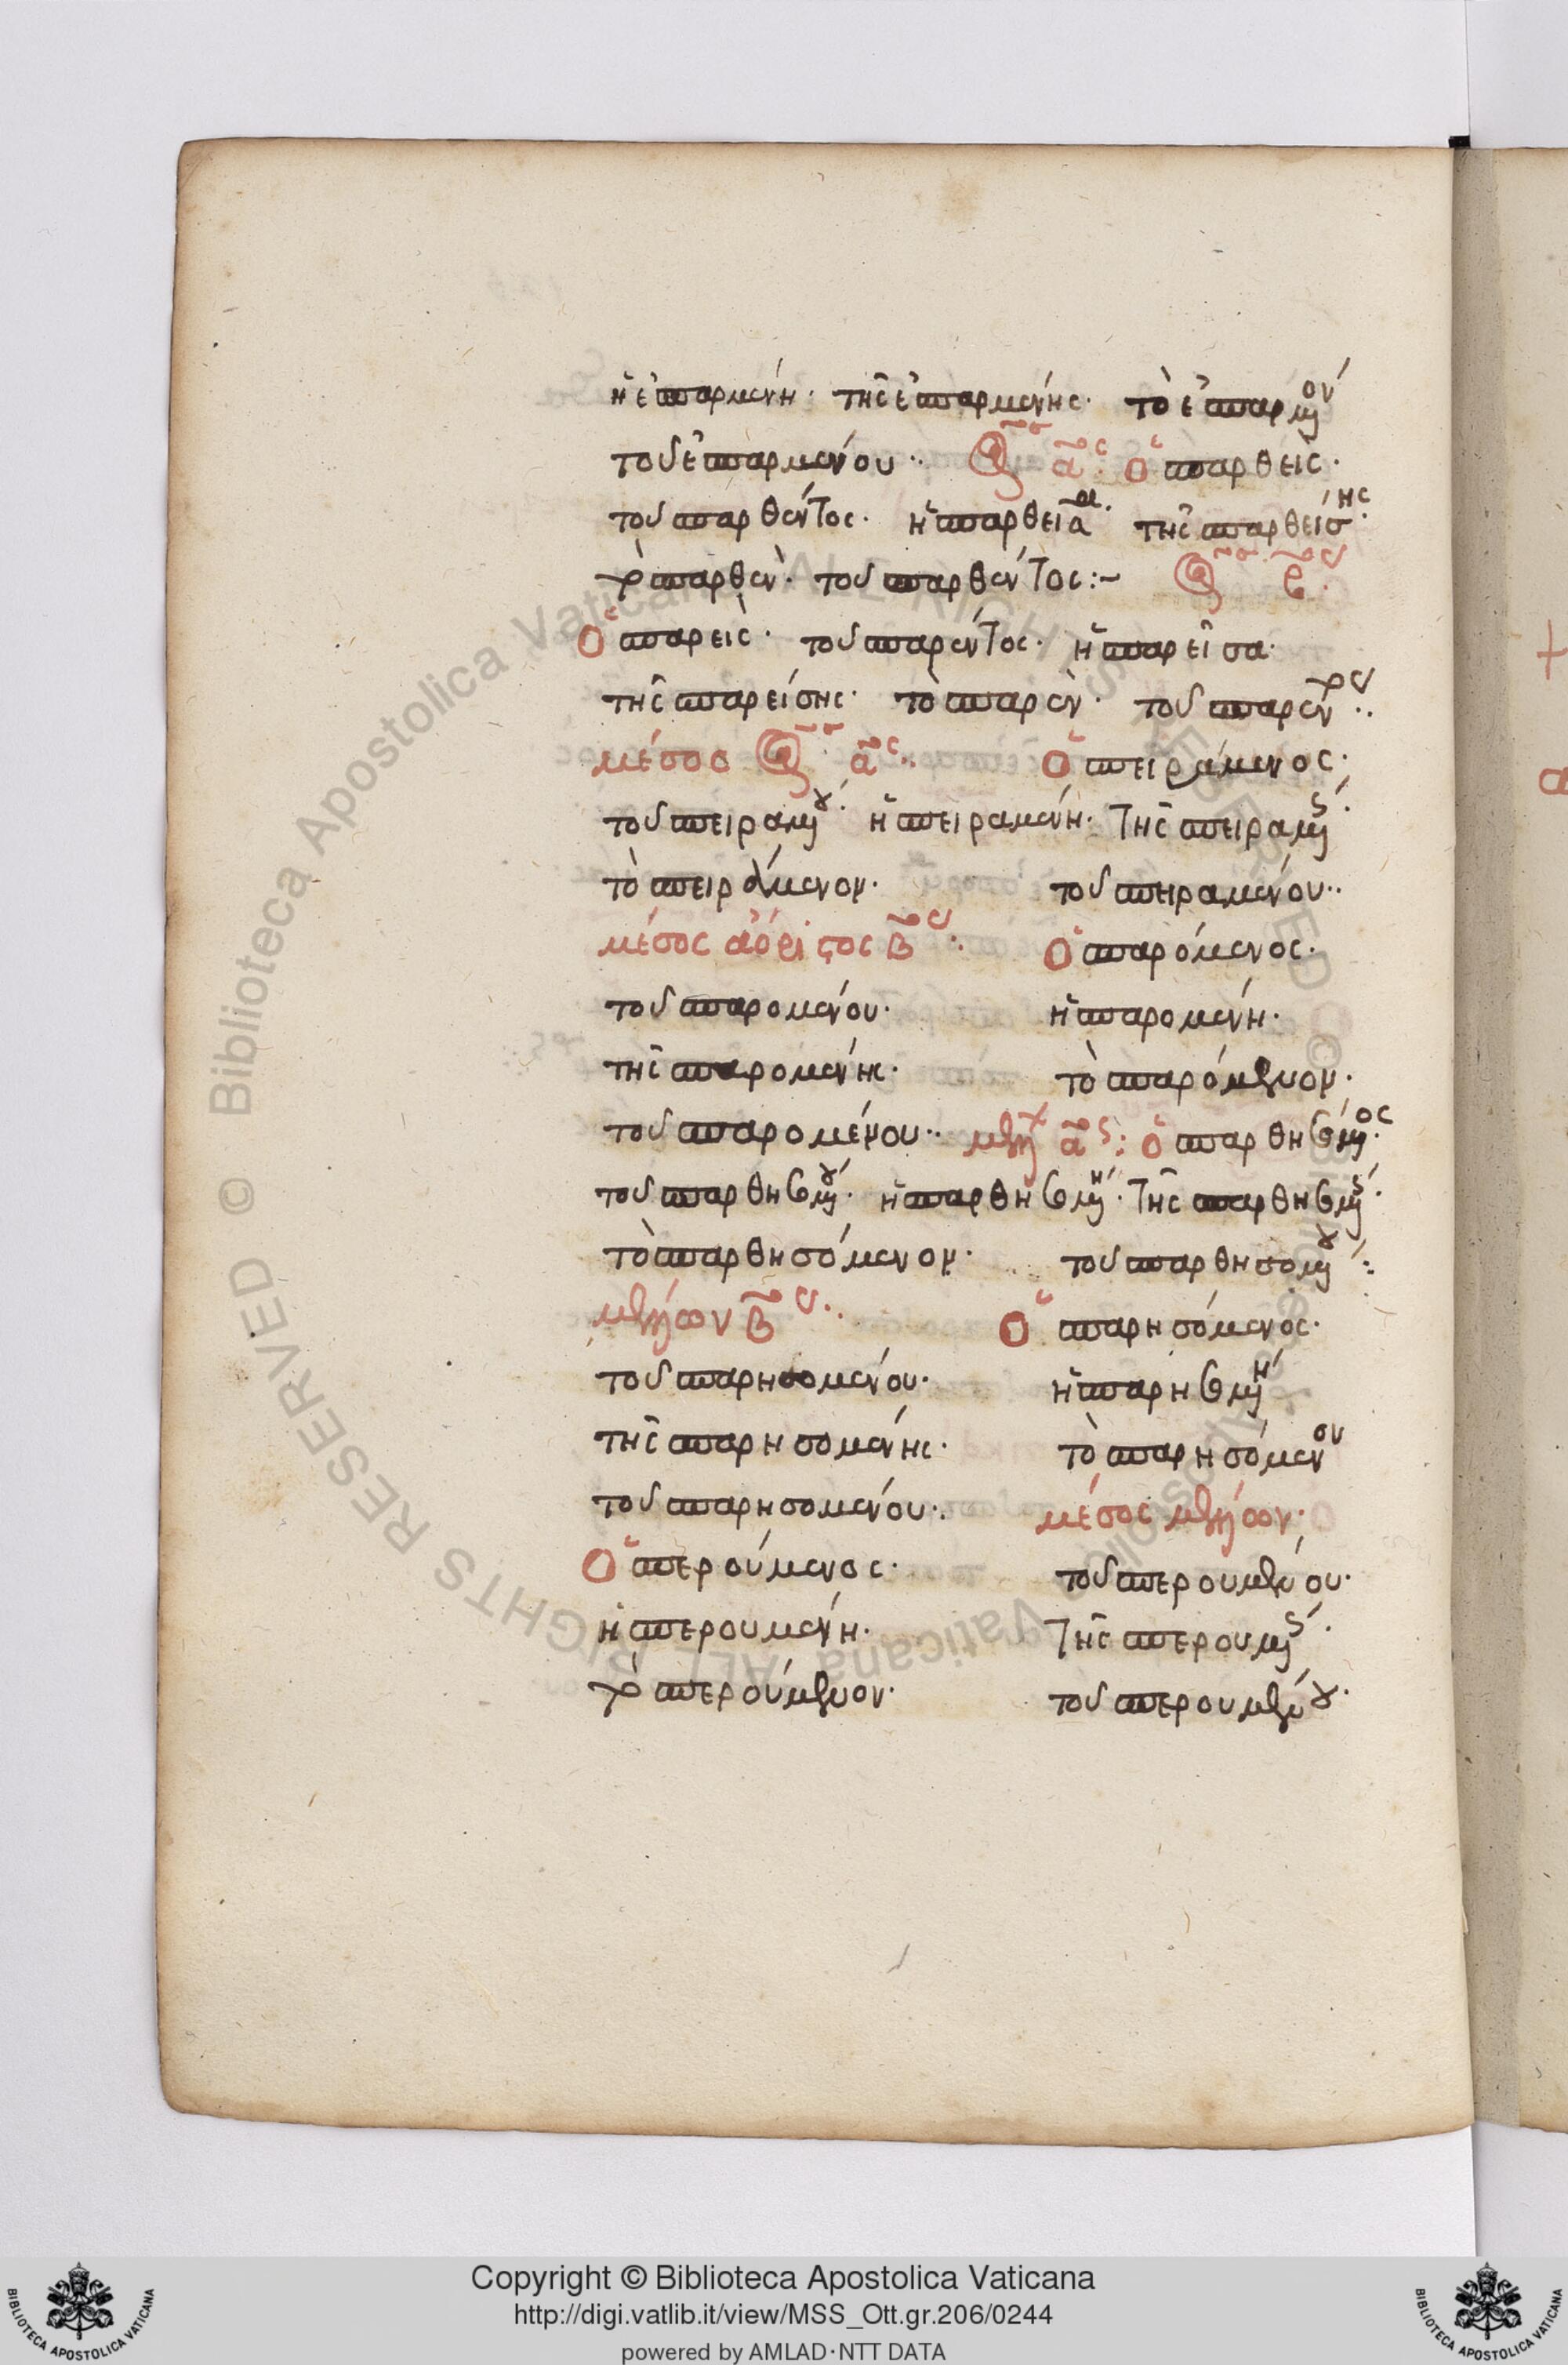 ἡ ἐσπαρμένη· τῆς ἐσπαρμένης· τὸ ἐσπαρμένον
τοῦ ἐσπαρμένου·· ἀόριστος αος· ὁ σπαρθείς·
τοῦ σπαρθέντος· ἡ σπαρθεῖσα· τῆς σπαρθείσης·
τὸ σπαρθέν· τοῦ σπαρθέντος:~ ἀόριστος βος
ὁ σπαρείς· τοῦ σπαρέντος· ἡ σπαρεῖσα·
τῆς σπαρείσης· τὸ σπαρέν· τοῦ σπαρέντος··
μέσος ἀόριστος αος·· ὁ σπειράμενος·
τοῦ σπειραμένου· ἡ σπειραμένη· τῆς σπειραμένης·
τὸ σπειράμενον· τοῦ σπειραμένου··
μέσος ἀόριστος βος·· ὁ σπαρόμενος·
τοῦ σπαρομένου· ἡ σπαρομένη·
τῆς σπαρομένης· τὸ σπαρόμενον·
τοῦ σπαρομένου·· μέλλων αος: ὁ σπαρθησόμενος·
τοῦ σπαρθησομένου· ἡ σπαρθησομένη· τῆς σπαρθησομένης·
τὸ σπαρθησόμενον· τοῦ σπαρθησομένου:
μέλλων βος·· ὁ σπαρησόμενος·
τοῦ σπαρησομένου· ἡ σπαρησομένη
τῆς σπαρησομένης· τὸ σπαρησόμενον
τοῦ σπαρησομένου·· μέσος μέλλων·
ὁ σπερούμενος· τοῦ σπερουμένου·
ἡ σπερουμένη· τῆς σπερουμένης·
τὸ σπερούμενον· τοῦ σπερουμένου·
© Biblioteca Apostolica Vaticana ALL RIGHTS RESERVED © Biblioteca Apostolica Vaticana ALL RIGHTS RESERVED
Copyright © Biblioteca Apostolica Vaticana
http://digi.vatlib.it/view/MSS_Ott.gr.206/0244
powered by AMLAD·NTT DATA
BIBLIOTECA APOSTOLICA VATICANA
BIBLIOTECA APOSTOLICA VATICANA